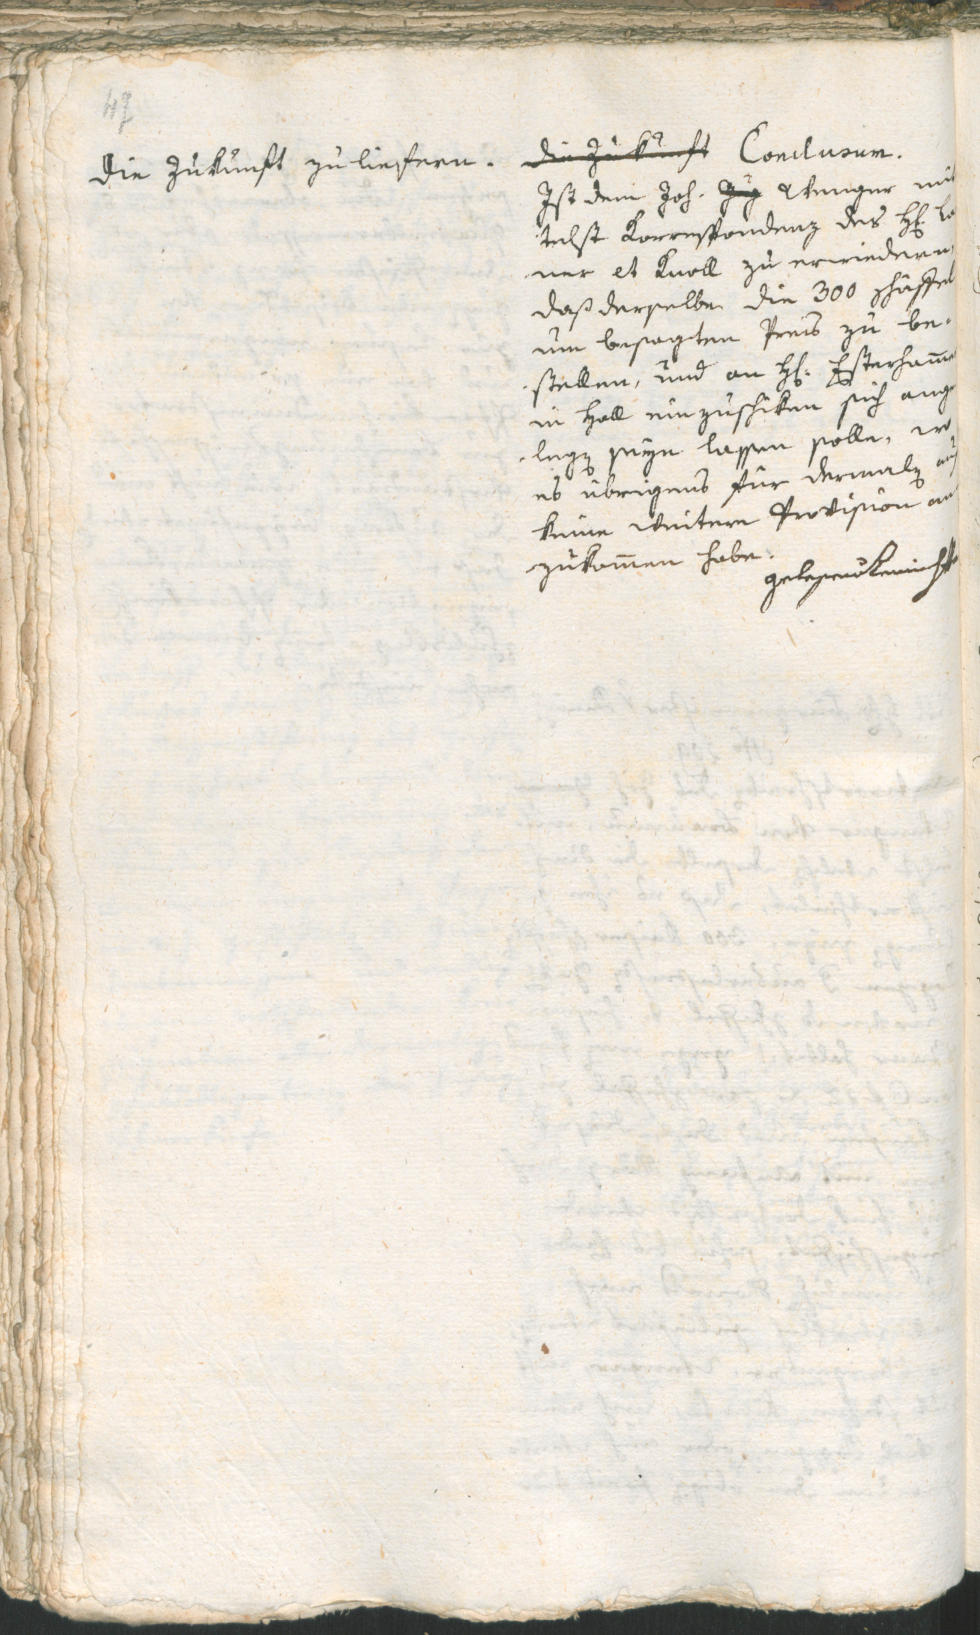 47
die Zukunft zu liefern.
die Zukunft Conclusum.
Ist dem Joh. Wenger mit
telst Korrespondenz des H:
ner et Knoll zu erwiedern
daß derselbe die 300 schäffel
um besagten Preis zu be-
stellen, und an H: Esterhamer
in Hall einzuschiken sich ange
legen seyn lassen solle, wo
es übrigens für dermalen auf
keine weitere Provision an
zukommen habe.